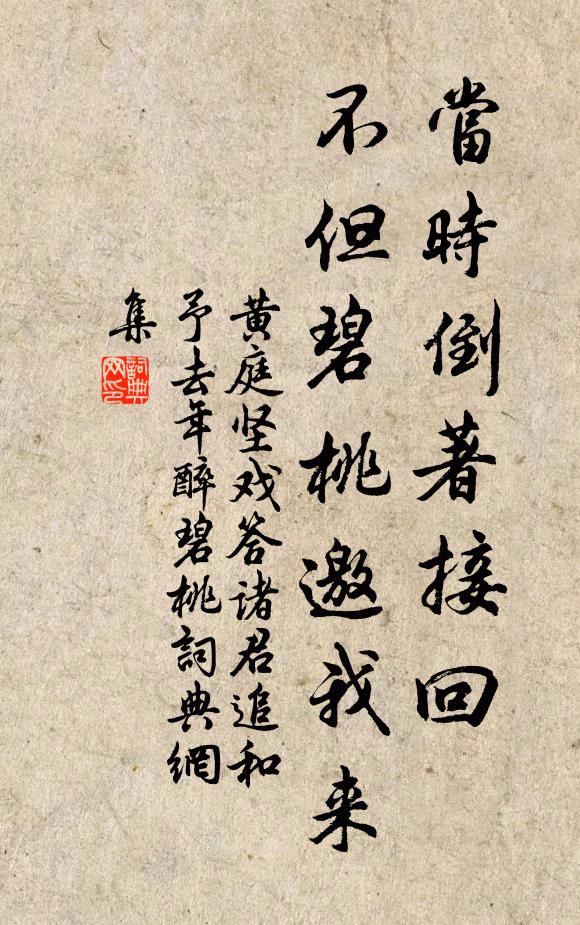 當時倒著接回
不但碧桃邀我来
黄庭坚戏答诸君追和
予去年醉碧桃詞典網
集
詞典
网印